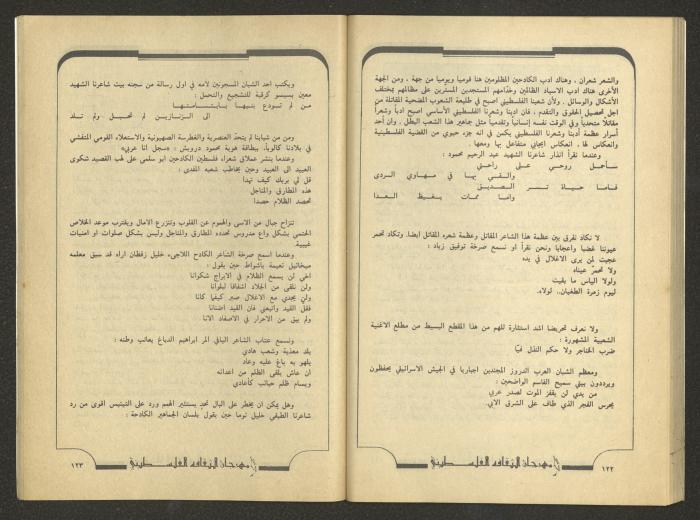 والشعر شعران ، وهناك ادب الكادحين المظلومين هنا قوميا ويوميا من جهة ، ومن الجهة
الأخرى هناك ادب الاسياد الظالمين وخدّامهم المستجدين المسترين على مظالمهم بمختلف
الأشكال والوسائل . ولأن شعبنا الفلسطيني اصبح في طليعة الشعوب المضحية المقاتلة من
اجل تحصيل الحقوق والتقدم ، فان ادبنا وشعرنا الفلسطيني الأساسي اصبح ادباً وشعراً
مقاتلاً متحدياً وفي الوقت نفسه إنسانياً وتقدمياً مثل جماهير هذا الشعب البطل . وان أحد
أسرار عظمة أدبنا وشعرنا الفلسطيني يكمن في انه جزء حيوي من القضية الفلسطينية
وانعكاس لها . انعكاس ايجابي متفاعل بها ومعها .
وعندما نقرأ انذار شاعرنا الشهيد عبد الرحيم محمود :
سأحمل روحي على راحتي
وألقي بها في مهاوي الردى
فاما حياة تسر الصديق
واما ممات يغيظ العدا
لا نكاد نفرق بين عظمة هذا الشاعر المقاتل وعظمة شعره المقاتل ايضا. وتكاد تحمر
عيوننا غضبا واعجابا ونحن نقرأ او نسمع صرخة توفيق زياد :
عجبت لمن يرى الاغلال في يده
ولا تحمرّ عيناه
ولولا الياس ما بقيت
ليوم زمرة الطغيان.. لولاه.
ولا نعرف تحريضا اشد استثارة للهم من هذا المقطع البسيط من مطلع الاغنية
الشعبية المشهورة :
ضرب الخناجر ولا حكم النذل فيّا
ومعظم الشبان العرب الدروز المجندين اجباريا في الجيش الاسرائيلي يحفظون
ويرددون بيتي سميح القاسم الواضحين :
من يدي لن يقفز الموت لصدر عربي
يحرس الفجر الذي طاف على الشرق الابي.
مهرجان الثقافة الفلسطيني
١٢٢
ويكتب احد الشبان المسجونين لأمه في اول رسالة من سجنه بيت شاعرنا الشهيد
معين بسيسو كرقية للتشجيع والتحمل :
من لم تودع بنيها بابتسامتها
الى الزنازين لم تحبل ولم تلد
ومن من شبابنا لم يتحدّ العنصرية والغطرسة الصهيونية والاستعلاء القومي المتفشي
في بلادنا كالوباء، ببطاقة هوية محمود درويش : «سجل انا عربي»
وعندما ينشر عملاق شعراء فلسطين الكادحين ابو سلمى على لهب القصيد شكوى
العبيد الى العبيد وحين يخاطب شعبه المفدى :
قل لي بربك كيف تهدا
هذه المطارق والمناجل
تحصد الظلام حصدا
تنزاح جبال من الاسى والهموم عن القلوب وتنزرع الامال ويقترب موعد الخلاص
الحتمي بشكل واع مدروس تحدده المطارق والمناجل وليس بشكل صلوات او امنيات
غيبية.
وعندما اسمع صرخة الشاعر الكادح اللاجىء خليل زقطان اراه قد سبق معلمه
ميخائيل نعيمة باشواط حين يقول :
اخي لن يسمع الظلام في الابراج شكوانا
ولن نلقى من الجلاد اشفاقا لبلوانا
ولن يجدي مع الاغلال صبر كيفما كانا
فقل القيد وانبعني فان القيد اضنانا
ولم يبق من الاحرار في الاصفاد الانا
ونسمع عتاب الشاعر اليافي المر ابراهيم الدباغ يعاتب وطنه :
بك معذبة وشعب هادي
يلهو به باغ عليه وعاد
ان عاش يلقى الظلم من اعدائه
ويسام ظلم حبائب كأعادي
وهل يمكن ان يخطر على البال تحدٍ يستثير الهمم ورد على التيئيس اقوى من رد
شاعرنا الطبقي خليل توما حين يقول بلسان الجماهير الكادحة :
مهرجان الثقافة الفلسطيني
١٢٣